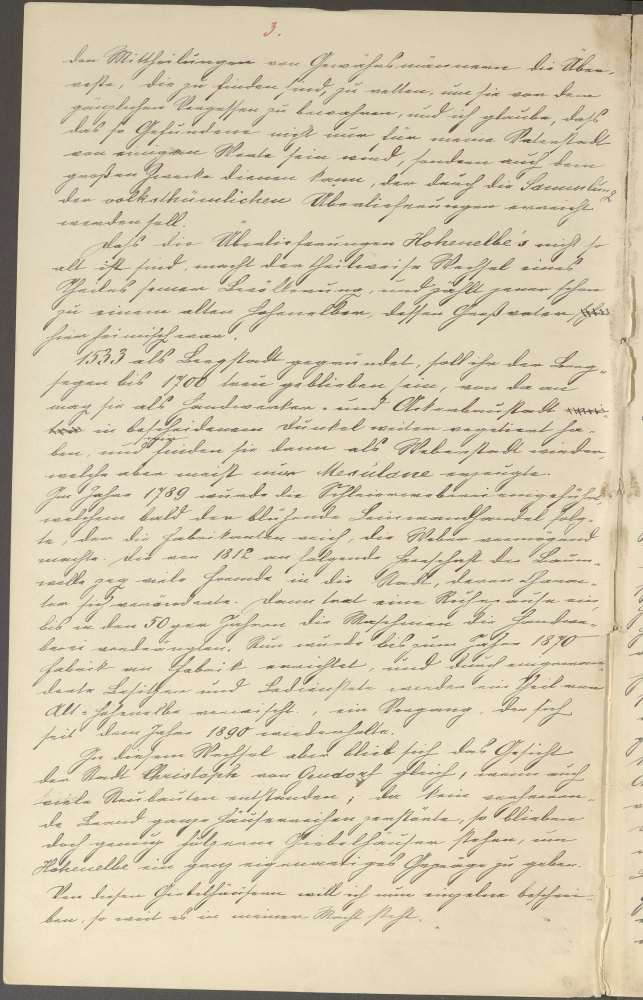 3.
den Mittheilungen von Gewährsmännern die Über-
reste, die zu finden sind, zu retten, um sie von dem
gänzlichen Vergessen zu bewahren, und ich glaube, daß
das so Gefundene nicht nur für meine Vaterstadt
von einigem Werte sein wird, sondern auch dem
großen Zwecke dienen kann, der durch die Sammlung
der volksthümlichen Überlieferungen erreicht
werden soll.
Daß die Überlieferungen Hohenelbe's nicht so
alt sind, macht der theilweise Wechsel eines
Theiles seiner Bevölkerung, und zählt jener schon
zu einem alten Hohenelber, dessen Großvater
hier heimisch war.
1533 als Bergstadt gegründet, soll ihr der Berg-
segen bis 1700 treu geblieben sein, von da an
mag sie als Handwerker- und Ackerbaustadt
in bescheidenem Dunkel weiter vegetiert ha-
ben, und finden sie dann als Weberstadt wieder,
welche aber meist nur Mesulane erzeugte.
Im Jahre 1789 wurde die Schleierweberei eingeführt,
welchem bald der blühende Leinwandhandel folg-
te, der die Fabrikanten reich, die Weber vermögend
machte. Die von 1812 an folgende Herrschaft der Baum-
wolle zog viele Fremde in die Stadt, deren Charak-
ter sich veränderte. Dann trat eine Ruhepause ein,
bis in den 50ger Jahren die Maschinen die Handwe-
berei verdrängten. Nun wurde bis zum Jahre 1870
Fabrik an Fabrik errichtet, und durch eingewan-
derte Besitzer und Bedienstete wurde ein Theil von
Alt-Hohenelbe verwischt, ein Vorgang, der sich
seit dem Jahre 1890 wiederholte.
In diesem Wechsel aber blieb sich das Gesicht
der Stadt Christoph von Gendorf gleich, wenn auch
viele Neubauten entstanden; da kein verheeren-
der Brand ganze Häuserreihen zerstörte, so blieben
doch genug hölzerne Giebelhäuser stehen, um
Hohenelbe ein ganz eigenartiges Gepräge zu geben.
Von diesen Giebelhäusern will ich nun einzelne beschrei-
ben, so weit es in meiner Macht steht.